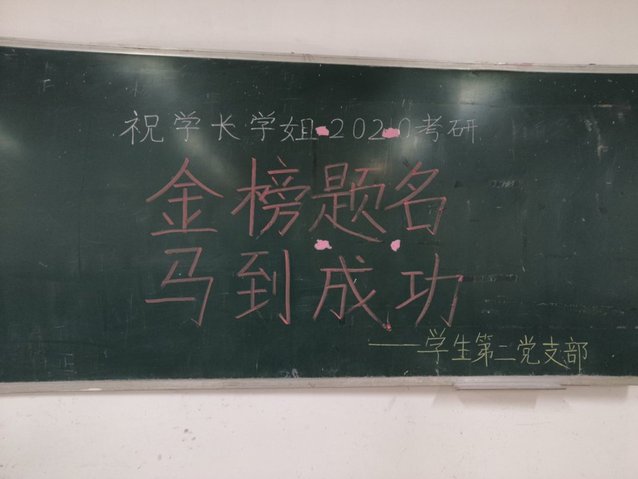 祝学长学姐2020考研
金榜题名
马到成功
——学生第二党支部